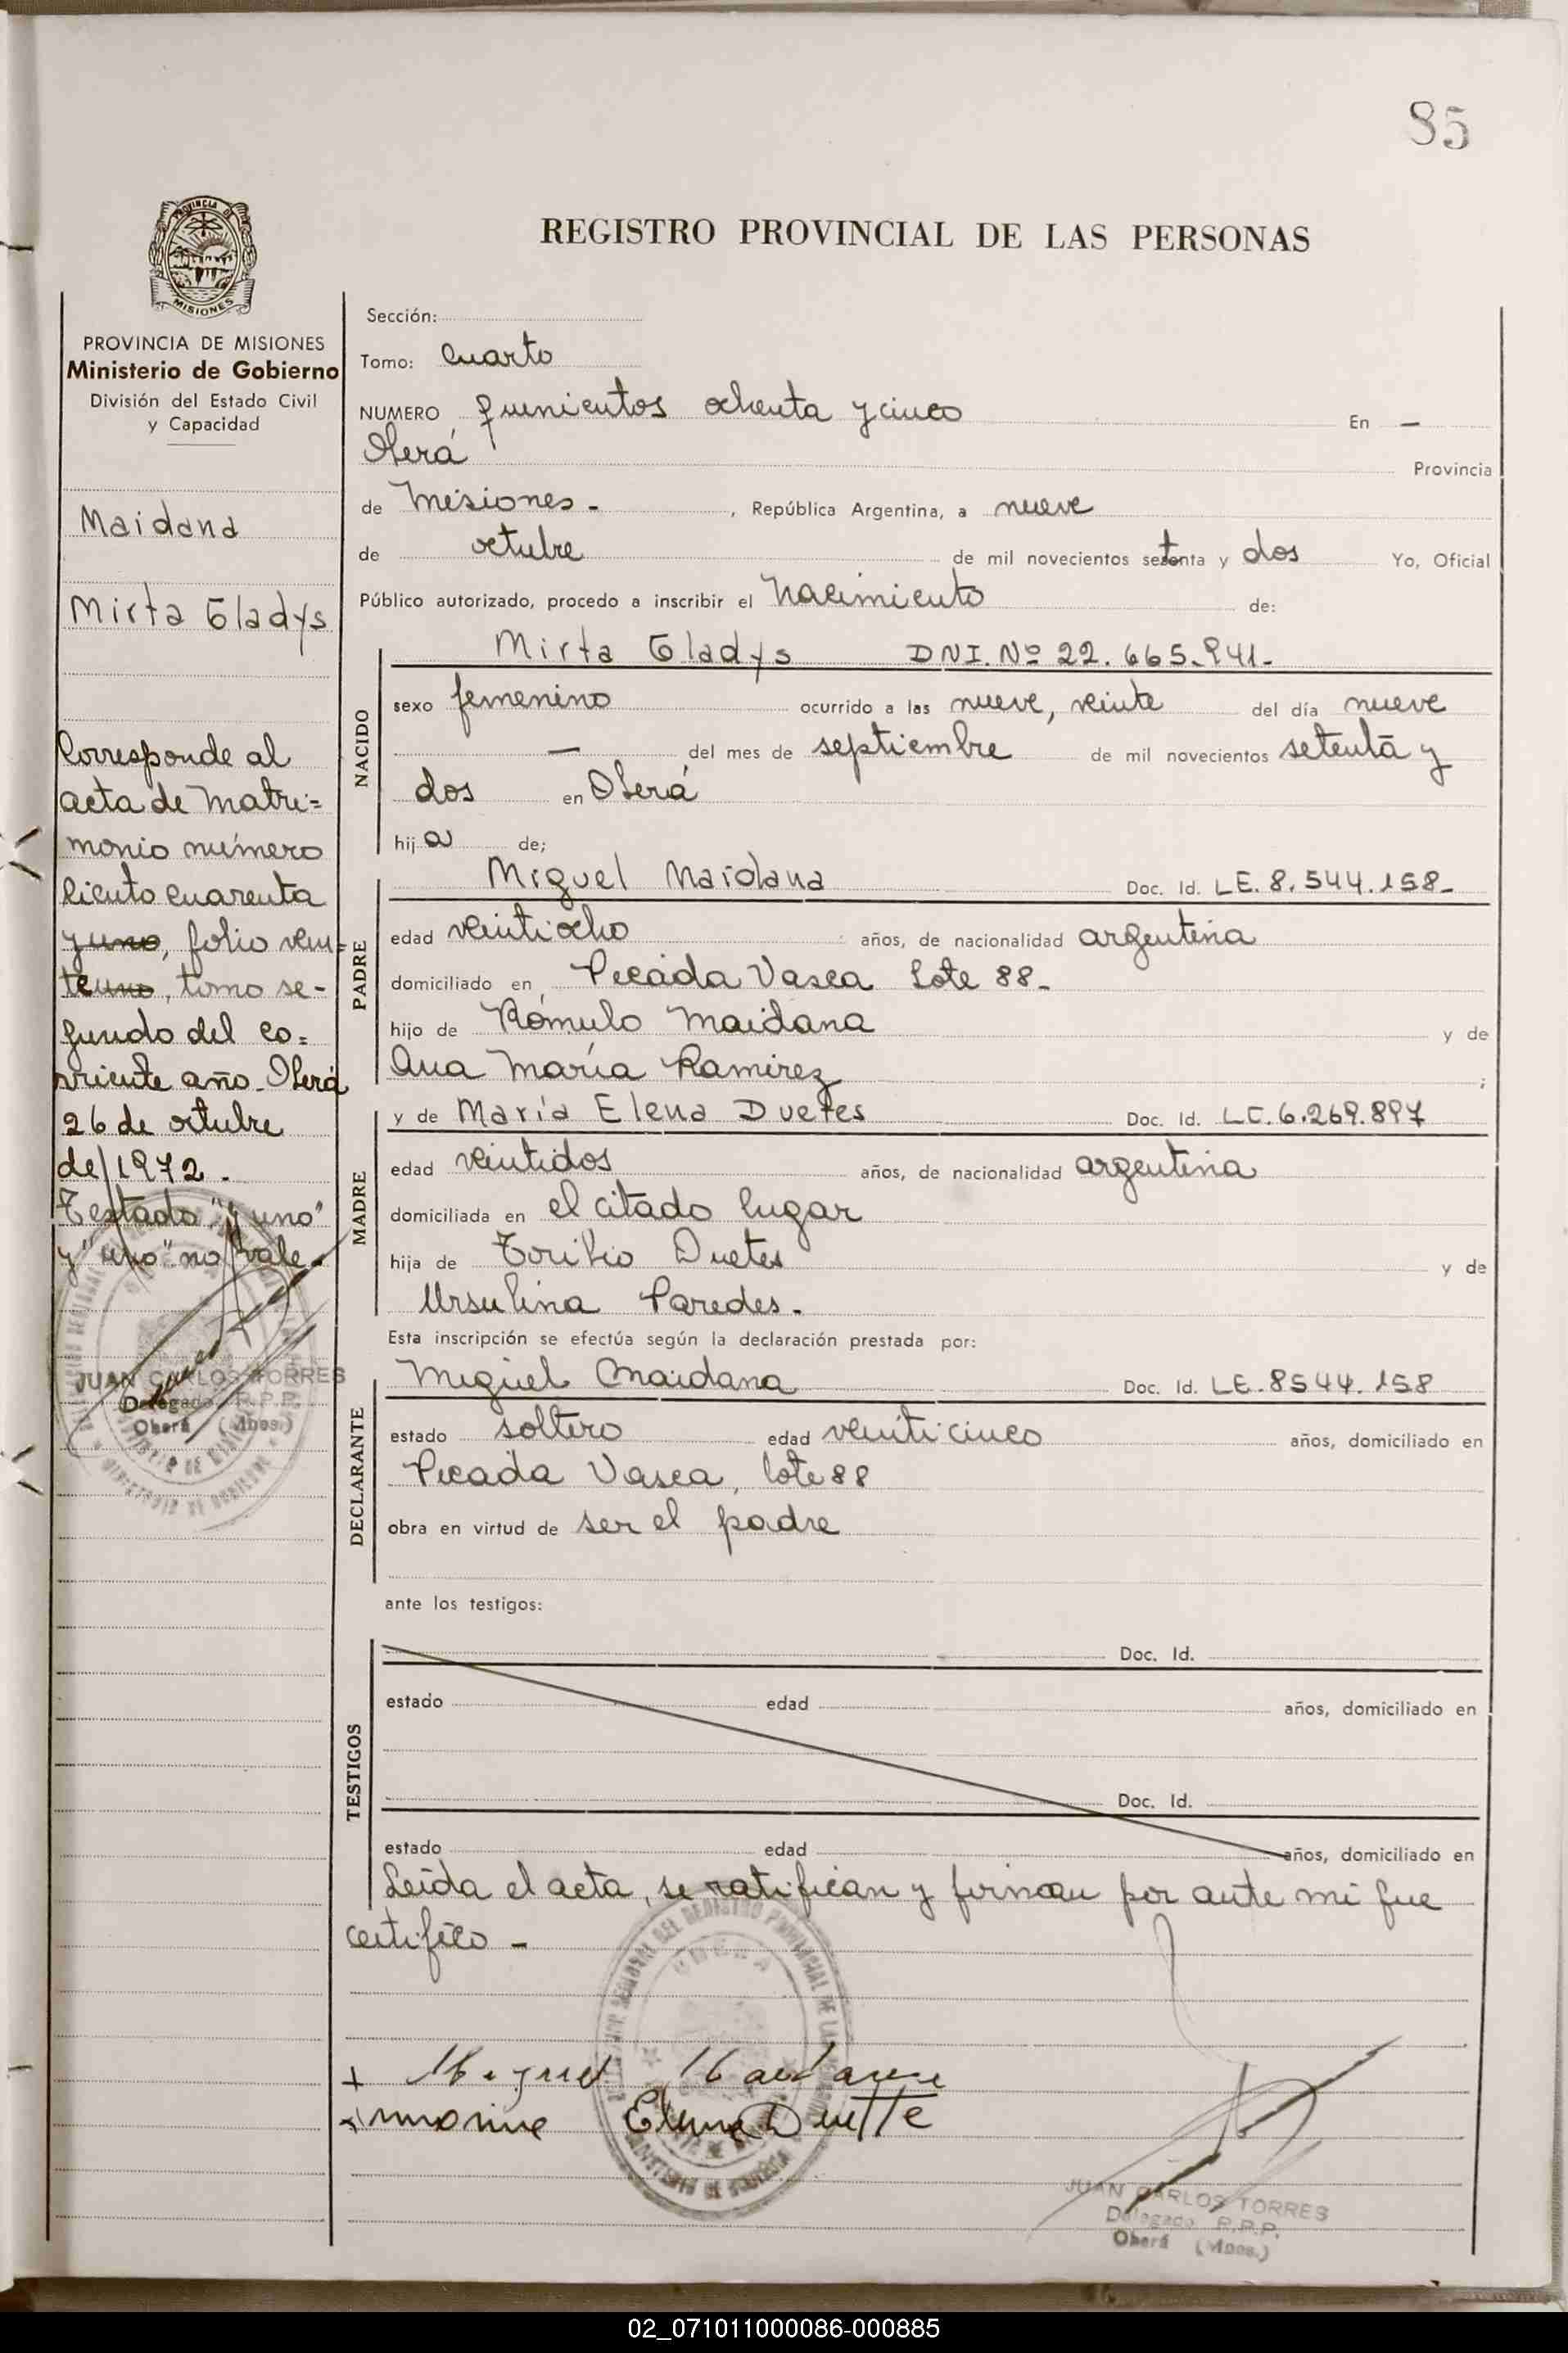 85
PROVINCIA DE
MISIONES
REGISTRO PROVINCIAL DE LAS PERSONAS
PROVINCIA DE MISIONES
Ministerio de Gobierno
División del Estado Civil
y Capacidad
Maidana
Mirta Gladys
Corresponde al
acta de matri=
monio número
ciento cuarenta
y uno, folio vein=
teuno, tomo se-
gundo del co=
rriente año. Oberá
26 de octubre
de 1972.
Testado "y uno"
y "uno" no vale.
JUAN CARLOS TORRES
Delegado R.P.P.
Oberá (Mnes.)
Sección:
Tomo: Cuarto
NUMERO quinientos ochenta y cinco En —
Oberá Provincia
de Misiones. , República Argentina, a nueve
de octubre de mil novecientos setenta y dos Yo, Oficial
Público autorizado, procedo a inscribir el nacimiento de:
NACIDO
Mirta Gladys DNI. Nº 22.665.941.
sexo femenino ocurrido a las nueve, veinte del día nueve
— del mes de septiembre de mil novecientos setenta y
dos en Oberá
hija de;
PADRE
Miguel Maidana Doc. Id. LE. 8.544.158.
edad veintiocho años, de nacionalidad argentina
domiciliado en Picada Vasca Lote 88.
hijo de Rómulo Maidana y de
Ana María Ramirez ;
MADRE
y de María Elena Duetes Doc. Id. LC. 6.269.897
edad veintidos años, de nacionalidad argentina
domiciliada en el citado lugar
hija de Toribio Duetes y de
Ursulina Paredes.
Esta inscripción se efectúa según la declaración prestada por:
DECLARANTE
Miguel Maidana Doc. Id. LE. 8544.158
estado soltero edad veinticinco años, domiciliado en
Picada Vasca, lote 88
obra en virtud de ser el padre
ante los testigos:
TESTIGOS
Doc. Id.
estado edad años, domiciliado en
Doc. Id.
estado edad años, domiciliado en
Leída el acta, se ratifican y firman por ante mi que
certifico -
+ Miguel Maidana
Elena Duette
JUAN CARLOS TORRES
Delegado R.P.P.
Oberá (Mnes.)
02_071011000086-000885